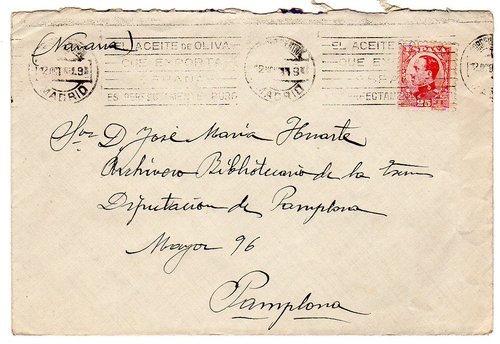 (Navarra)
EL ACEITE DE OLIVA
QUE EXPORTA
ESPAÑA
ES
PURO
MADRID
EL ACEITE
QUE EX
ESPAÑA
25
MADRID
Sor D. José María Huarte
Archivero Bibliotecario de la Excma
Diputación de Pamplona
Mayor 96
Pamplona